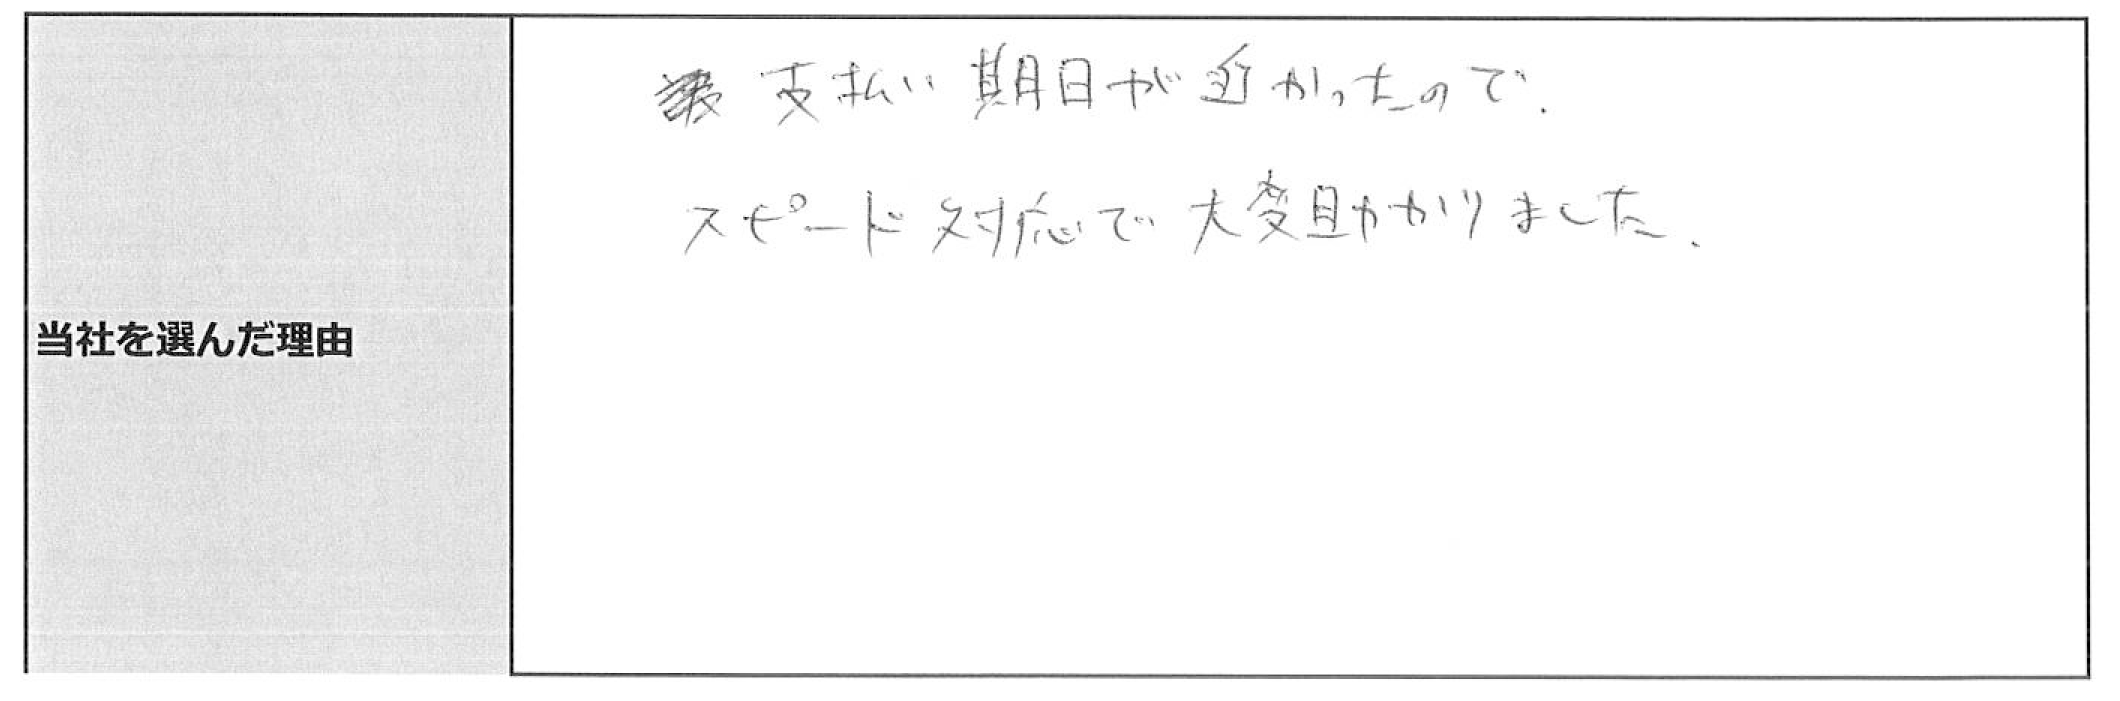 支払い期日が近かったので、
スピード対応で大変助かかりました、
当社を選んだ理由